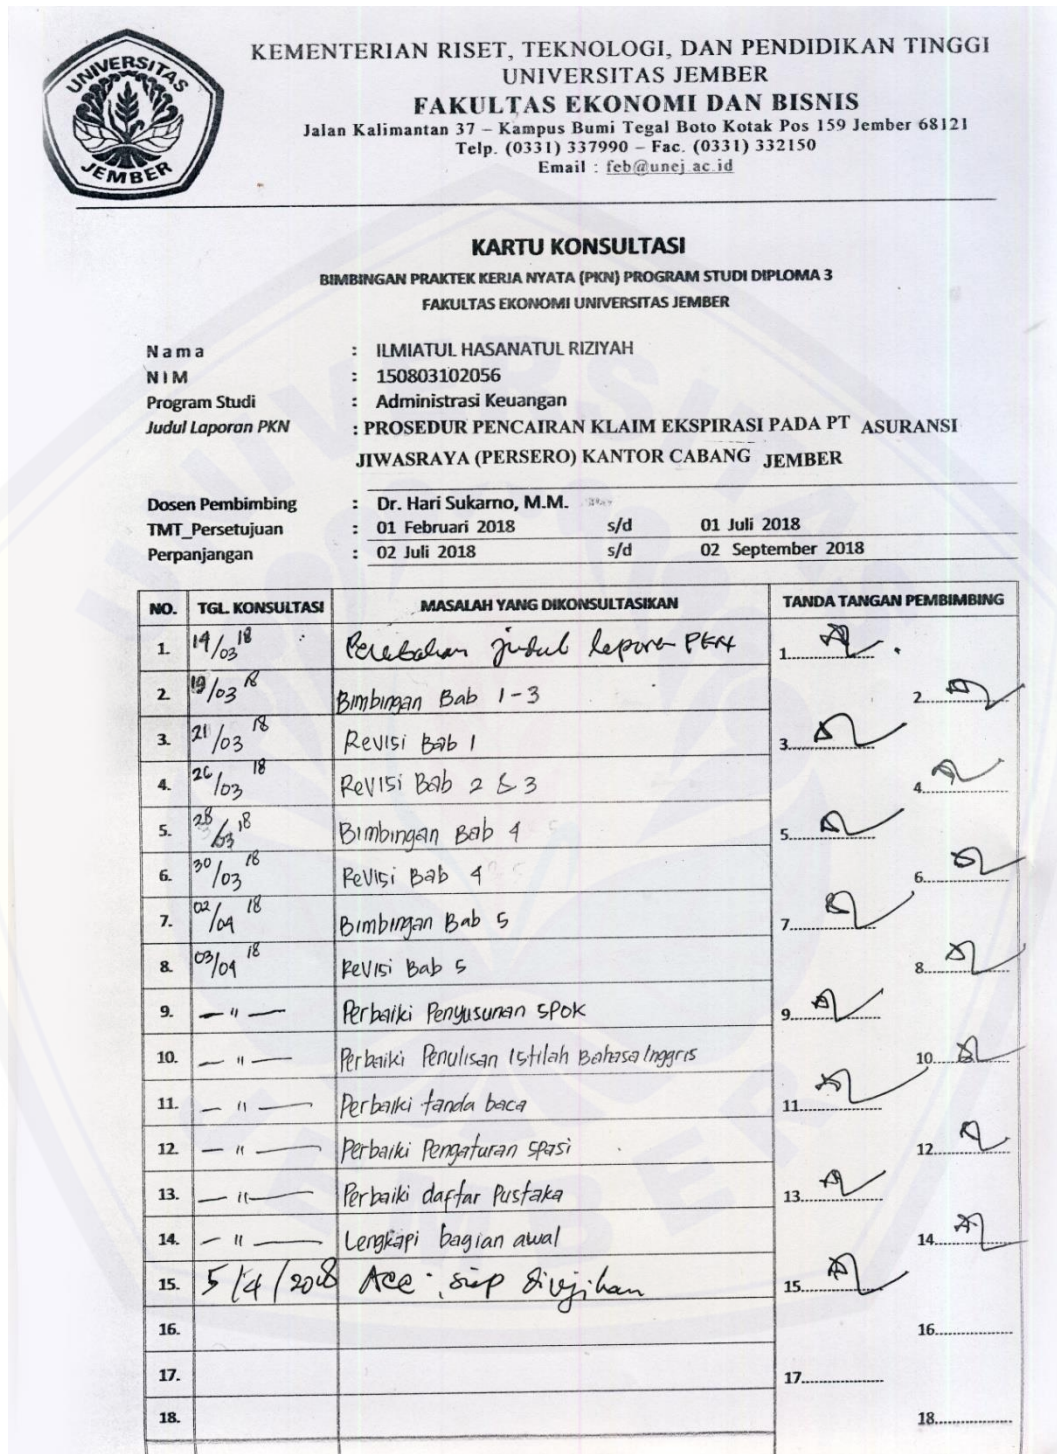 UNIVERSITAS
JEMBER
KEMENTERIAN RISET, TEKNOLOGI, DAN PENDIDIKAN TINGGI
UNIVERSITAS JEMBER
FAKULTAS EKONOMI DAN BISNIS
Jalan Kalimantan 37 – Kampus Bumi Tegal Boto Kotak Pos 159 Jember 68121
Telp. (0331) 337990 – Fac. (0331) 332150
Email : feb@unej.ac.id
KARTU KONSULTASI
BIMBINGAN PRAKTEK KERJA NYATA (PKN) PROGRAM STUDI DIPLOMA 3
FAKULTAS EKONOMI UNIVERSITAS JEMBER
Nama : ILMIATUL HASANATUL RIZIYAH
NIM : 150803102056
Program Studi : Administrasi Keuangan
Judul Laporan PKN : PROSEDUR PENCAIRAN KLAIM EKSPIRASI PADA PT ASURANSI
JIWASRAYA (PERSERO) KANTOR CABANG JEMBER
Dosen Pembimbing : Dr. Hari Sukarno, M.M.
TMT_Persetujuan : 01 Februari 2018 s/d 01 Juli 2018
Perpanjangan : 02 Juli 2018 s/d 02 September 2018
NO. TGL. KONSULTASI MASALAH YANG DIKONSULTASIKAN TANDA TANGAN PEMBIMBING
1. 14/03 18 judul laporan PKN 1.
2. 19/03 18 Bimbingan Bab 1-3 2.
3. 21/03 18 Revisi Bab 1 3.
4. 26/03 18 Revisi Bab 2 & 3 4.
5. 28/03 18 Bimbingan Bab 4 5.
6. 30/03 18 Revisi Bab 4 6.
7. 02/04 18 Bimbingan Bab 5 7.
8. 03/04 18 Revisi Bab 5 8.
9. — " — Perbaiki Penyusunan SPOK 9.
10. — " — Perbaiki Penulisan Istilah Bahasa Inggris 10.
11. — " — Perbaiki tanda baca 11.
12. — " — Perbaiki Pengaturan spasi 12.
13. — " — Perbaiki daftar Pustaka 13.
14. — " — Lengkapi bagian awal 14.
15. 5/4/2018 Acc : siap diujikan 15.
16. 16.
17. 17.
18. 18.